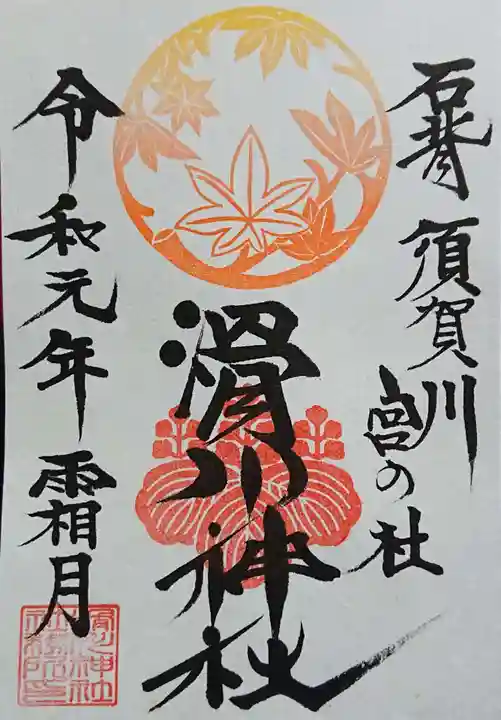 石背 須賀川
宮の杜
滑川神社
令和元年 霜月